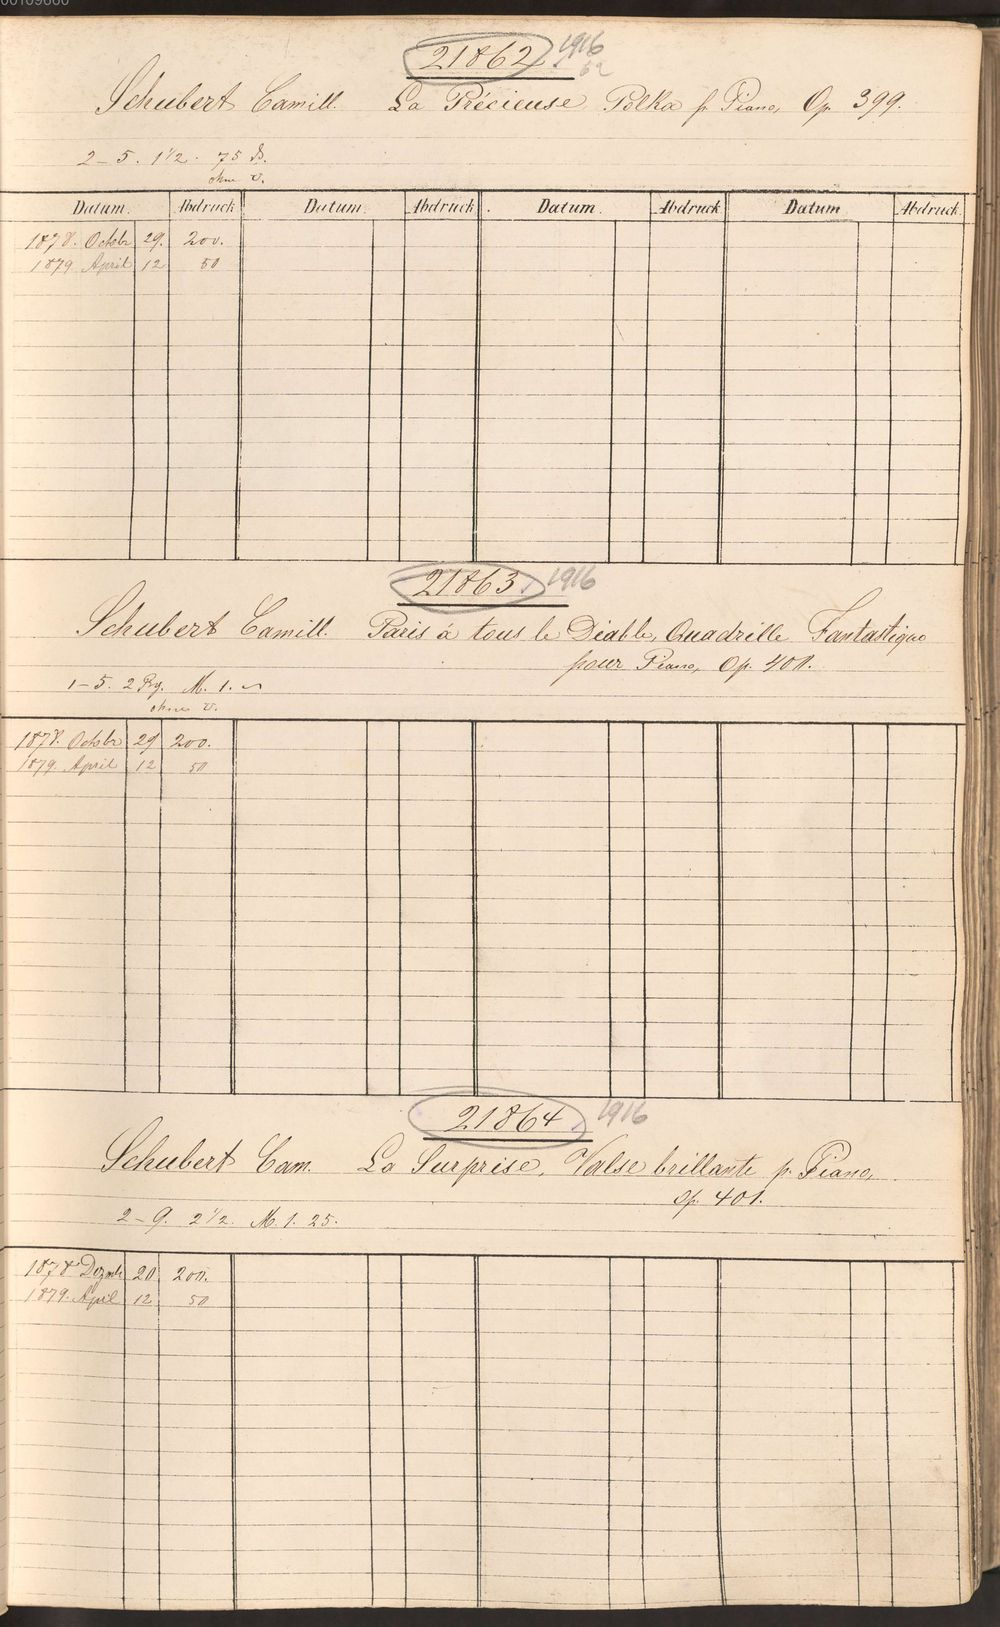 00109660
21862. 1916
62
Schubert Camill. La Précieuse Polka p Piano, Op 399.
2-5. 1½. 75 ₰.
ohne V.
Datum. Abdruck Datum. Abdruck. Datum. Abdruck Datum Abdruck.
1878. Octobr 29. 200.
1879 April 12 50
21863. 1916
Schubert Camill. Paris á tous le Diable, Quadrille Fantastique
pour Piano, Op. 400.
1-5. 2 Pg. M. 1. ~
ohne V.
1878. Octobr 29 200.
1879. April 12 50
21864. 1916
Schubert Cam. La Surprise, Valse brillante p. Piano,
Op. 401.
2-9. 2½. M. 1. 25.
1878 Dezmb 20. 200.
1879. April 12. 50